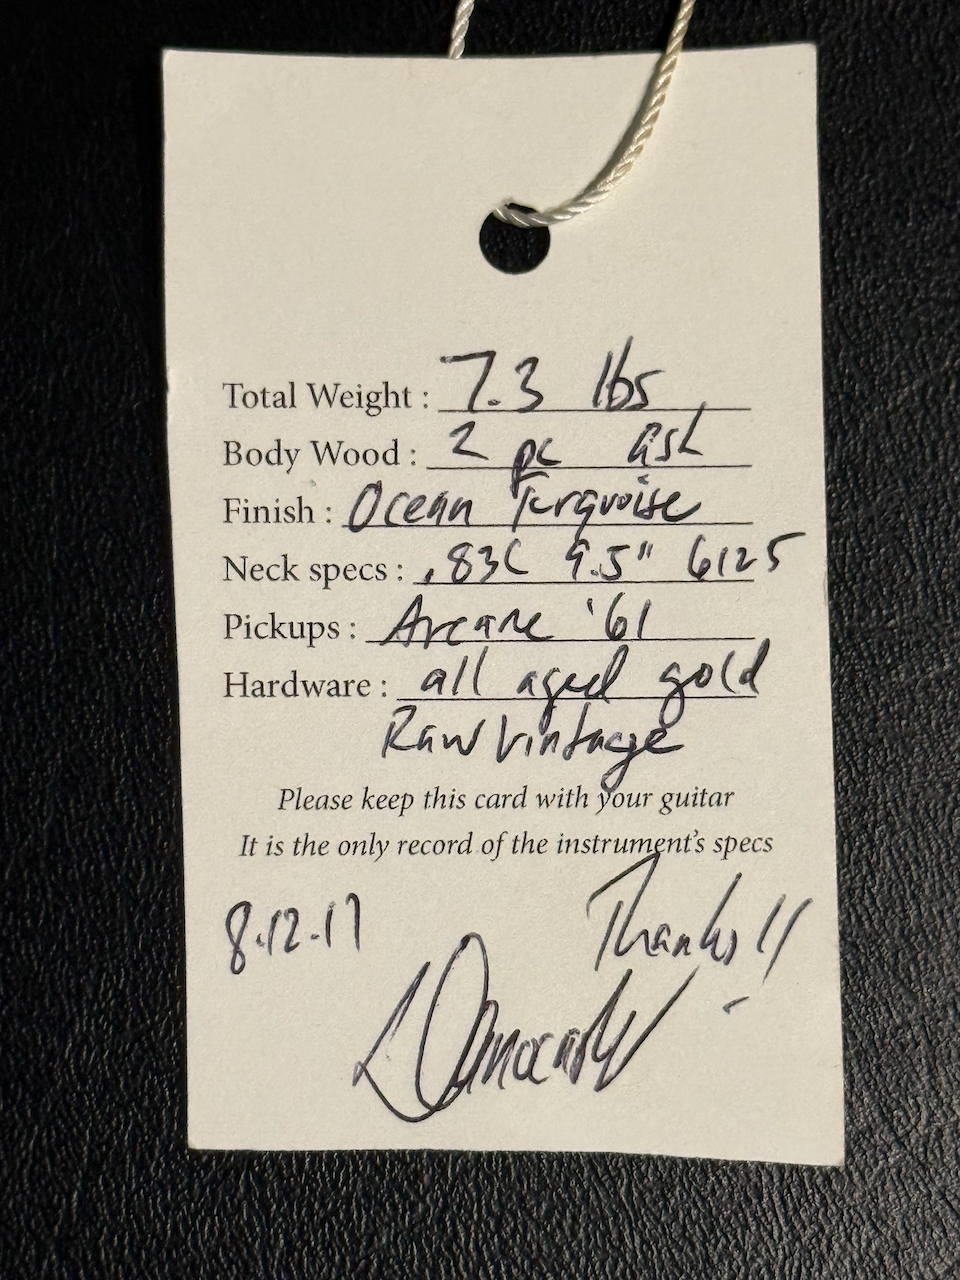 Total Weight : 7.3 lbs
Body Wood : 2 pc ash
Finish : Ocean Turquoise
Neck specs : .83C 9.5" 6125
Pickups : Arcane '61
Hardware : all aged gold
Raw Vintage
Please keep this card with your guitar
It is the only record of the instrument's specs
8.12.17
Thanks!!